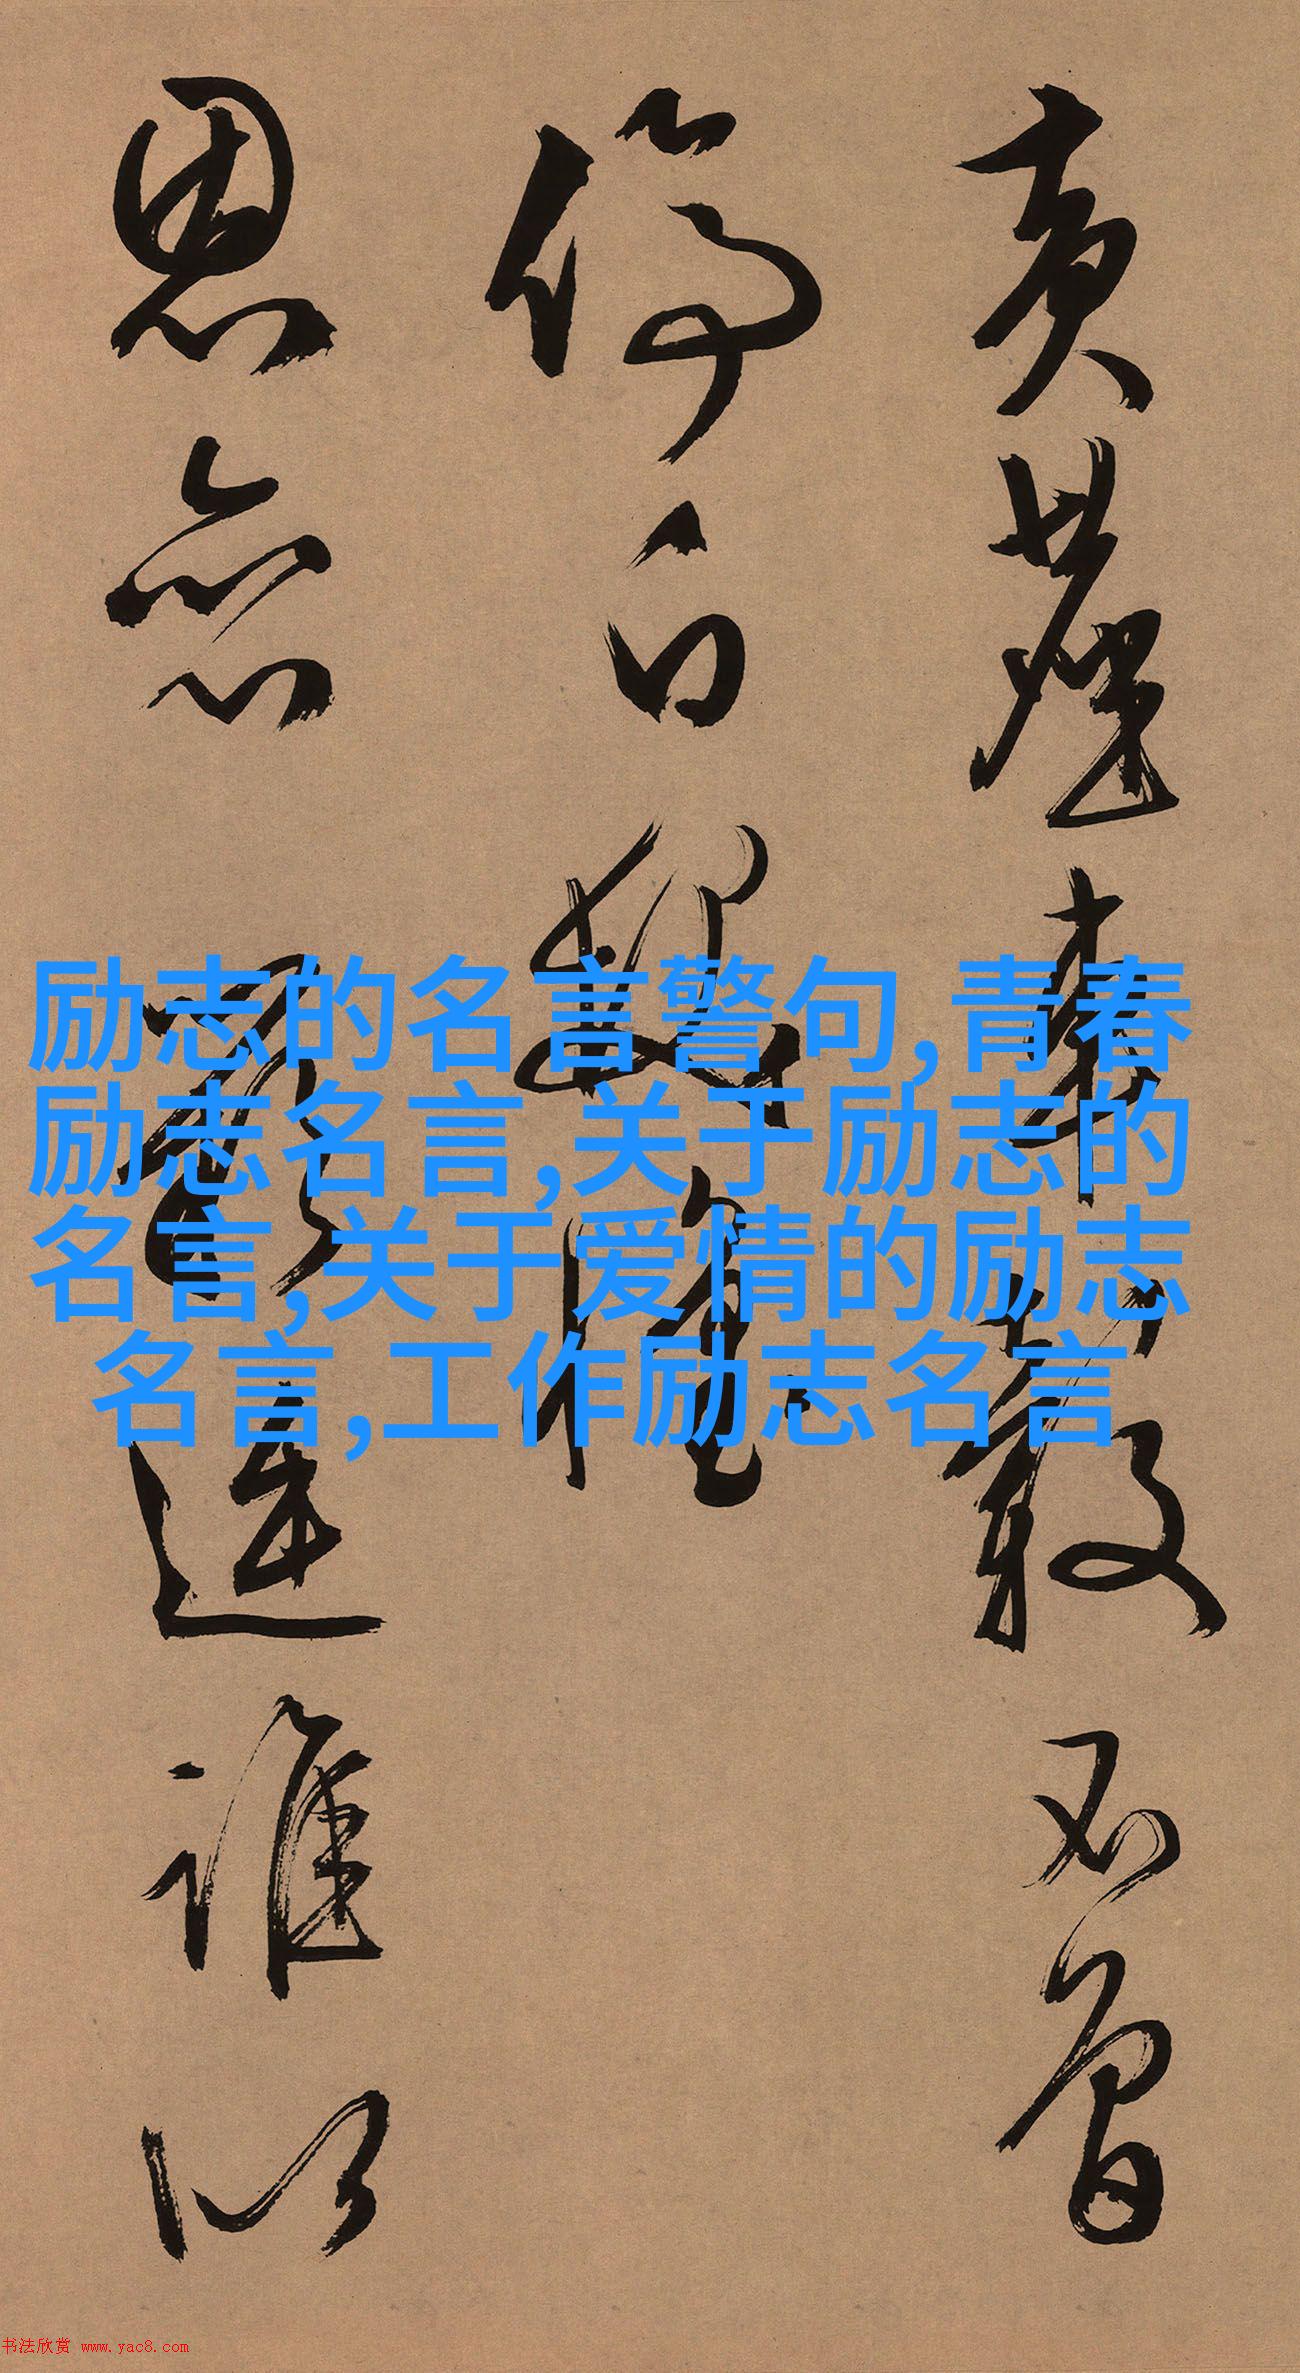 黃塵車轂不曾
停白
恩亦誰以
励志的名言警句,青春
励志名言,关于励志的
名言,关于爱情的励志
名言,工作励志名言
书法欣赏 www.yac8.com